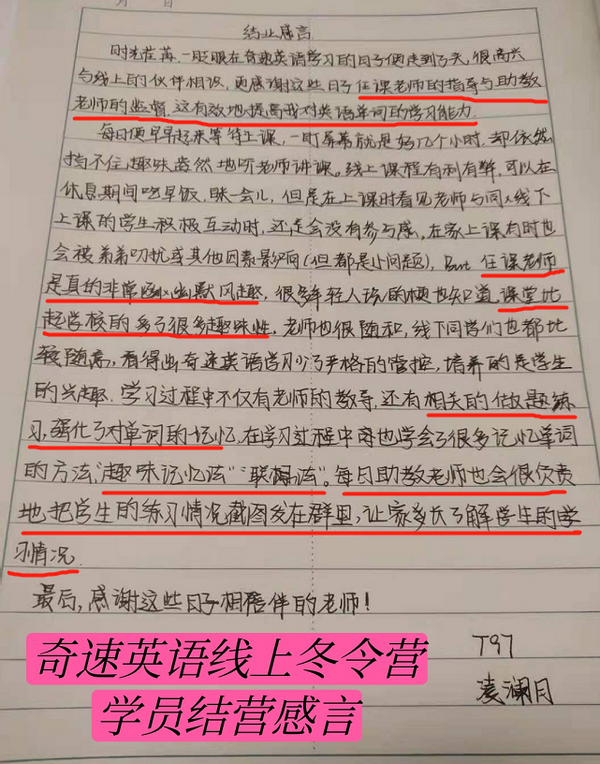 月 日
结业感言
时光荏苒,一眨眼在奇速英语学习的日子便走到了天,很高兴
与线上的伙伴相识,更感谢这些日子任课老师的指导与助教
老师的监督,这有效地提高我对英语单词的学习能力
每日便早早起来等待上课,一盯屏幕就是好几个小时.却依然
挡不住趣味盎然地听老师讲课。线上课程有利有弊,可以在
休息期间吃早饭,眯一会儿,但是在上课时看见老师与同义线下
上课的学生积极互动时,还是会没有参与感,在家上课有时也
会被弟弟叨扰或其他因素影响(但都是小问题),But 任课老师
是真的非常幽默风趣,很多年轻人玩的梗也知道,课堂比
起学校的多了很多趣味性,老师也很随和,线下同学们也都比
较随意,看得出奇速英语学习少了严格的管控,培养的是学生
的兴趣.学习过程中不仅有老师的教导,还有相关的做题练
习,强化了对单词的记忆,在学习过程中也学会了很多记忆单词
的方法,"趣味记忆法""联想法"。每日助教老师也会很负责
地把学生的练习情况截图发在群里,让家长了解学生的学
习情况
最后,感谢这些日子相陪伴的老师!
T97
凌澜月
奇速英语线上冬令营
学员结营感言